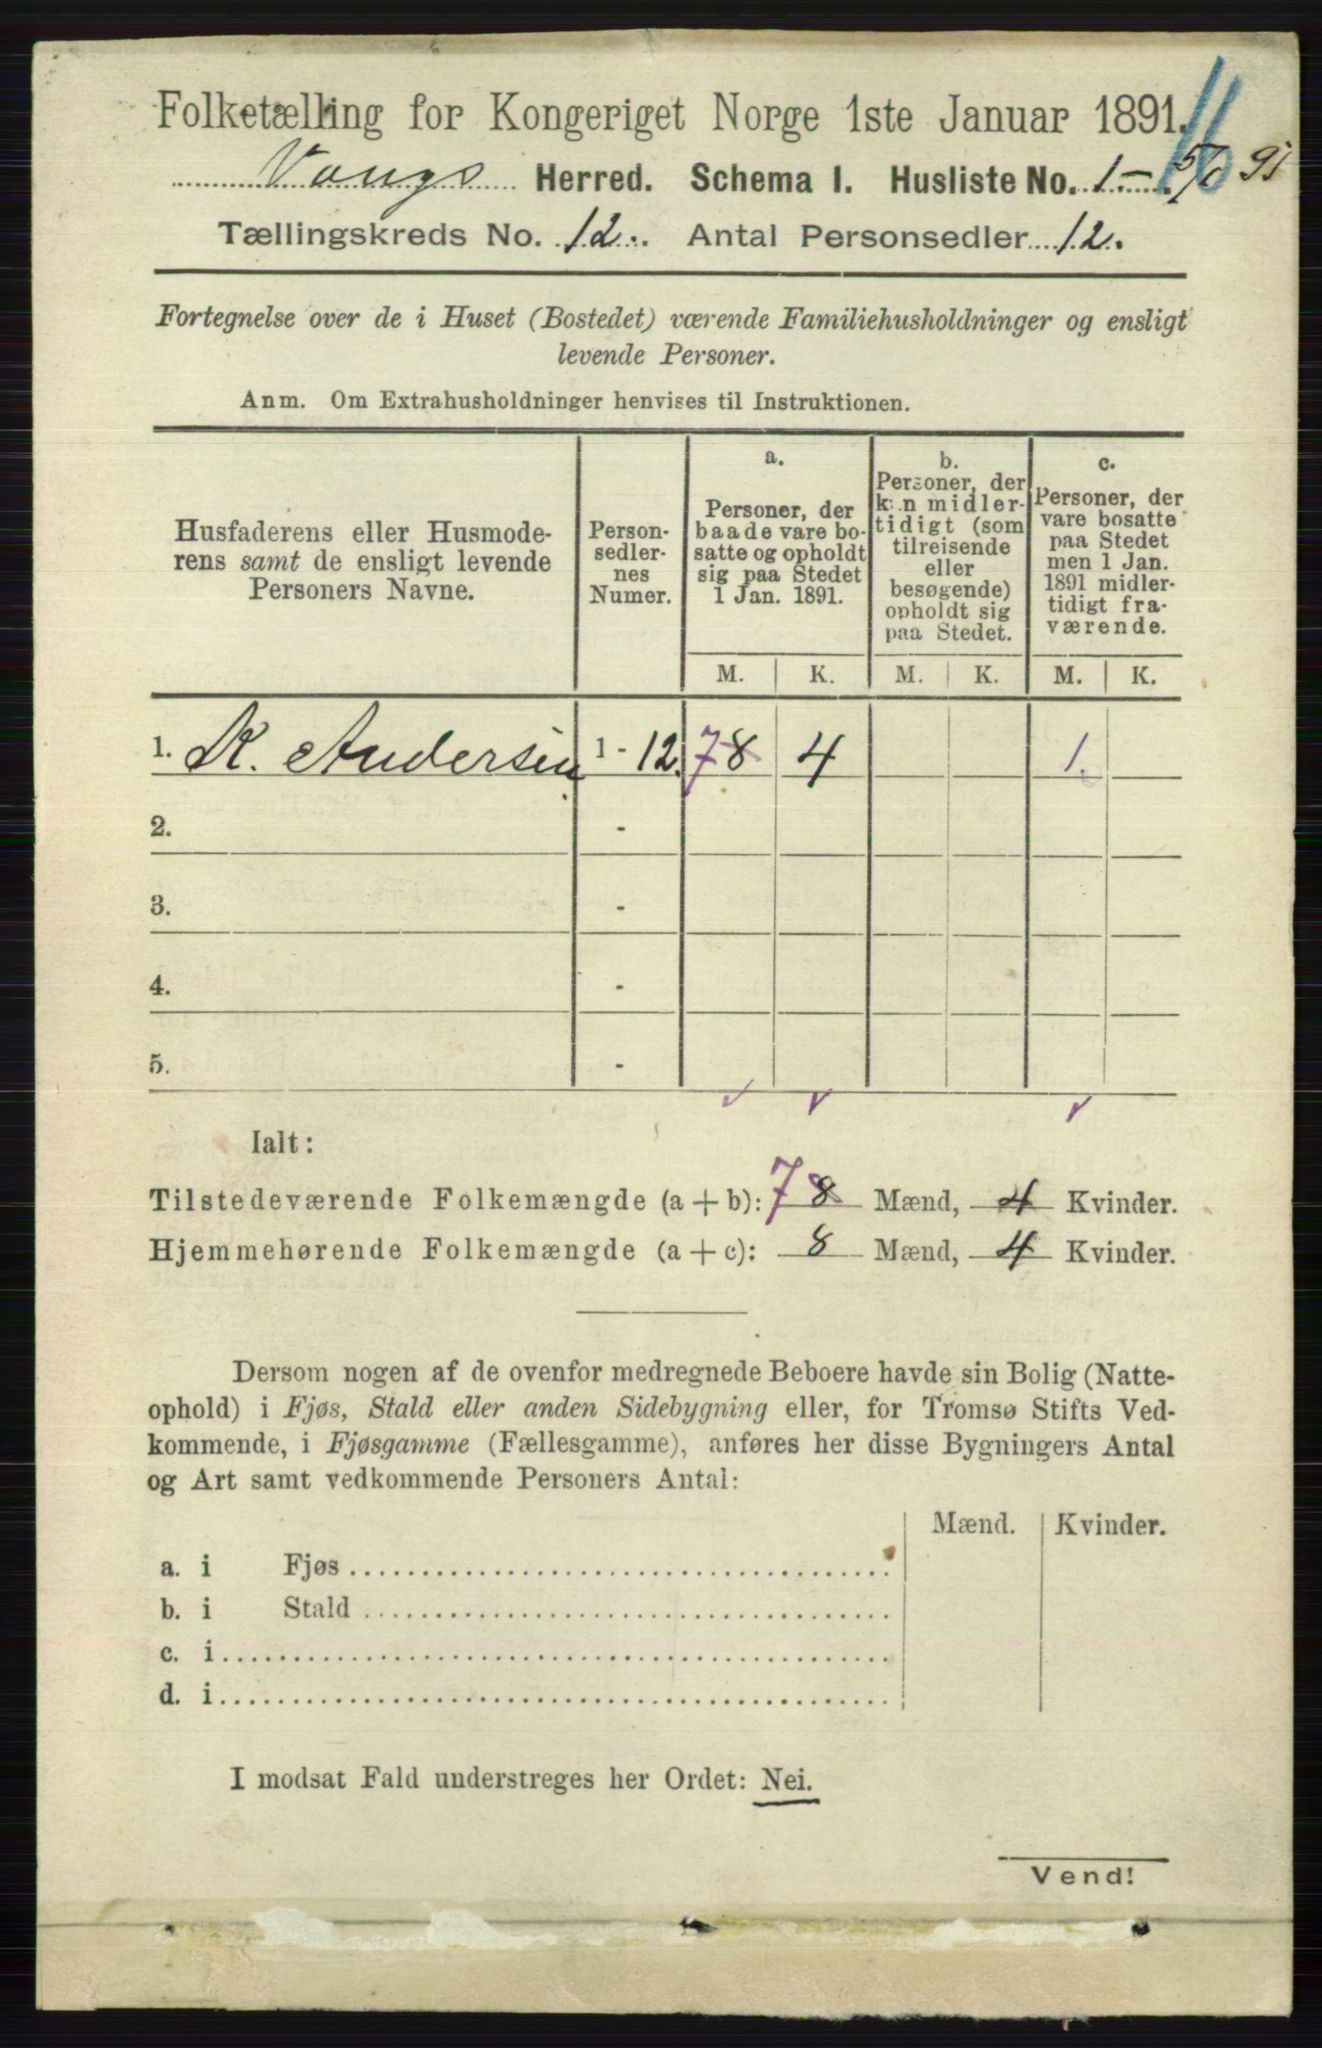 Folketælling for Kongeriget Norge 1ste Januar 1891.
Vangs Herred. Schema I. Husliste No. 1
Tællingskreds No. 12. Antal Personsedler 12.
Fortegnelse over de i Huset (Bostedet) værende Familiehusholdninger og ensligt
levende Personer.
Anm. Om Extrahusholdninger henvises til Instruktionen.
Husfaderens eller Husmode-
rens samt de ensligt levende
Personers Navne.
Person-
sedler-
nes
Numer.
a.
Personer, der
baade vare bo-
satte og opholdt
sig paa Stedet
1 Jan. 1891.
b.
Personer, der
kun midler-
tidigt (som
tilreisende
eller
besøgende)
opholdt sig
paa Stedet.
c.
Personer, der
vare bosatte
paa Stedet
men 1 Jan.
1891 midler-
tidigt fra-
værende.
M. K. M. K. M. K.
1. K. Andersen 1 - 12. 7 8 4 1.
2. -
3. -
4. -
5. -
Ialt:
Tilstedeværende Folkemængde (a + b): 7 8 Mænd, 4 Kvinder.
Hjemmehørende Folkemængde (a + c): 8 Mænd, 4 Kvinder.
Dersom nogen af de ovenfor medregnede Beboere havde sin Bolig (Natte-
ophold) i Fjøs, Stald eller anden Sidebygning eller, for Tromsø Stifts Ved-
kommende, i Fjøsgamme (Fællesgamme), anføres her disse Bygningers Antal
og Art samt vedkommende Personers Antal:
Mænd. Kvinder.
a. i Fjøs
b. i Stald
c. i
d. i
I modsat Fald understreges her Ordet: Nei.
Vend!